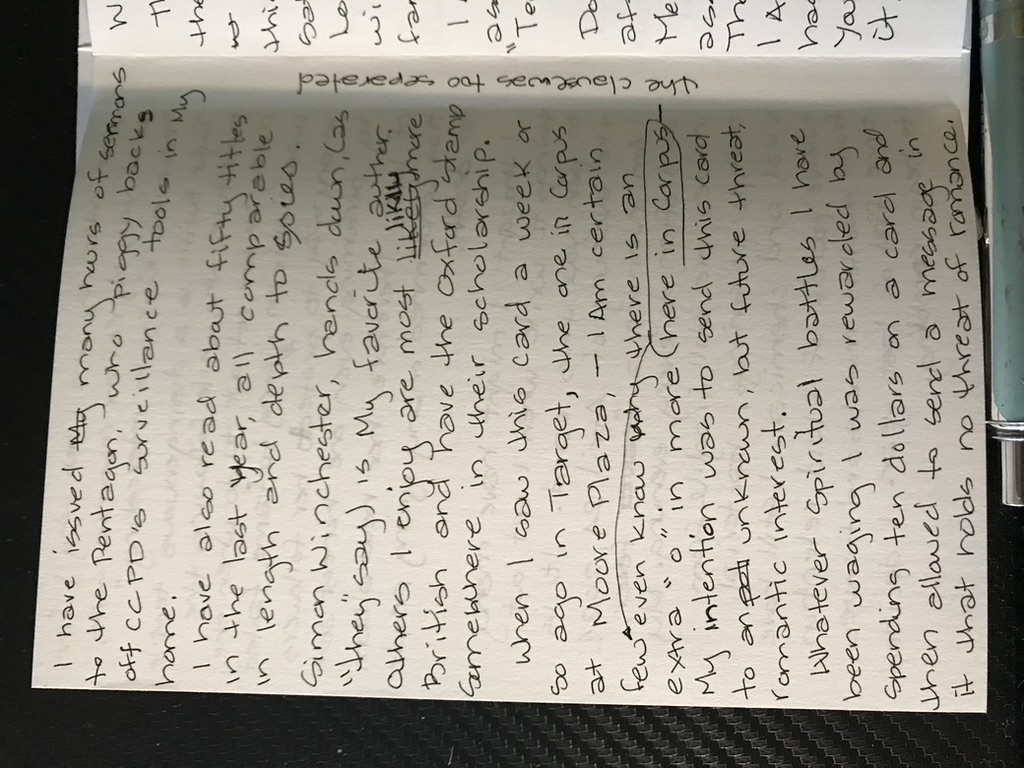 I have issued My many hours of sermons
to the Pentagon, who piggy backs
off CCPD's surveillance tools in My
home.
I have also read about fifty titles
in the last year, all comparable
in length and depth to spies.
Simon Winchester, hands down, (as
"they" say) is My favorite author.
likily
Others I enjoy are most likely more
British and have the Oxford stamp
Somewhere in their scholarship.
When I saw this card a week or
so ago in Target, the one in Corpus
at Moore Plaza, - I Am certain
few even know why there is an
extra "o" in more (here in Corpus-
My intention was to send this card
to an unknown, but future threat,
romantic interest.
Whatever Spiritual battles I have
been waging I was rewarded by
spending ten dollars on a card and
then allowed to send a message in
it that holds no threat of romance.
the clause was too separated
W
Th
the
thi
sa
Lo
wi
far
I
as
"Te
Do
af
Me
as
Th
I A
ha
You
it